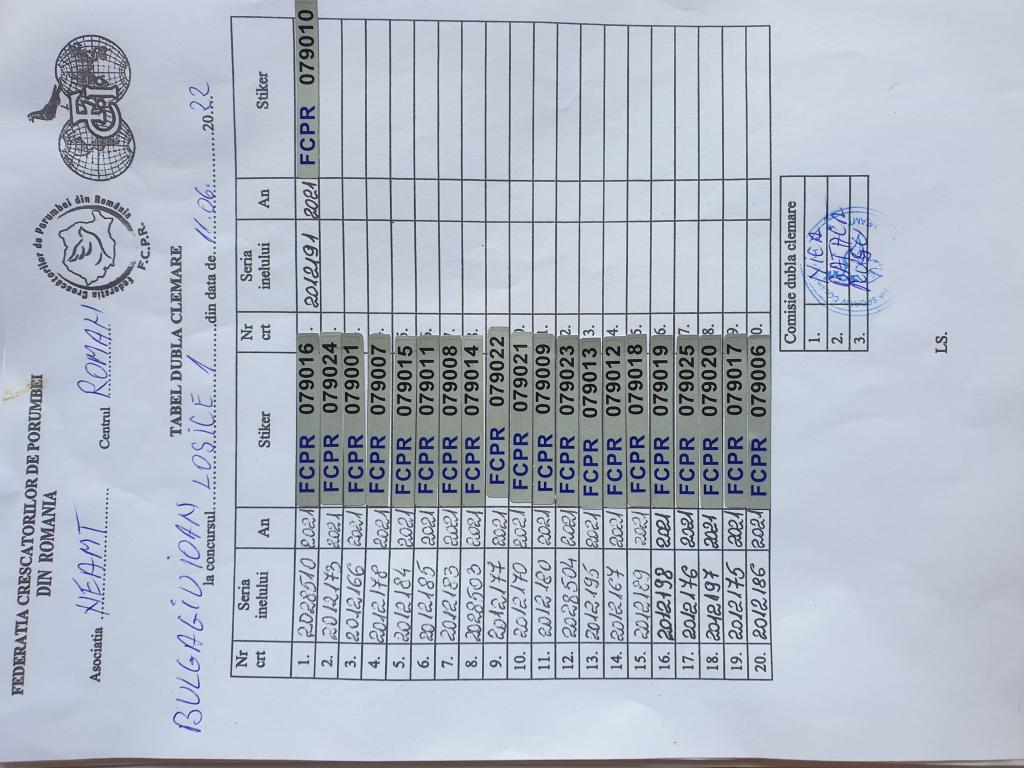 FEDERATIA CRESCATORILOR DE PORUMBEI
DIN ROMANIA
Federatia Crescatorilor de Porumbei din România
F.C.P.R.
FCI
Asociatia NEAMT Centrul ROMAN
TABEL DUBLA CLEMARE
BULGAGIU IOAN
la concursul LOSICE 1 din data de 11.06. 2022
Nr crt Seria inelului An Stiker Nr crt Seria inelului An Stiker
1. 2028510 2021 FCPR 079016 . 2012191 2021 FCPR 079010
2. 2012173 2021 FCPR 079024
3. 2012166 2021 FCPR 079001
4. 2012178 2021 FCPR 079007
5. 2012184 2021 FCPR 079015 5.
6. 2012185 2021 FCPR 079011 6.
7. 2012183 2021 FCPR 079008 7.
8. 2028503 2021 FCPR 079014
9. 2012177 2021 FCPR 079022
10. 2012170 2021 FCPR 079021 0.
11. 2012180 2021 FCPR 079009 1.
12. 2028504 2021 FCPR 079023 2.
13. 2012195 2021 FCPR 079013 3.
14. 2012167 2021 FCPR 079012 4.
15. 2012189 2021 FCPR 079018 5.
16. 2012198 2021 FCPR 079019 6.
17. 2012176 2021 FCPR 079025 7.
18. 2012197 2021 FCPR 079020 8.
19. 2012175 2021 FCPR 079017 9.
20. 2012186 2021 FCPR 079006 0.
Comisie dubla clemare
1.
2.
3.
LS.